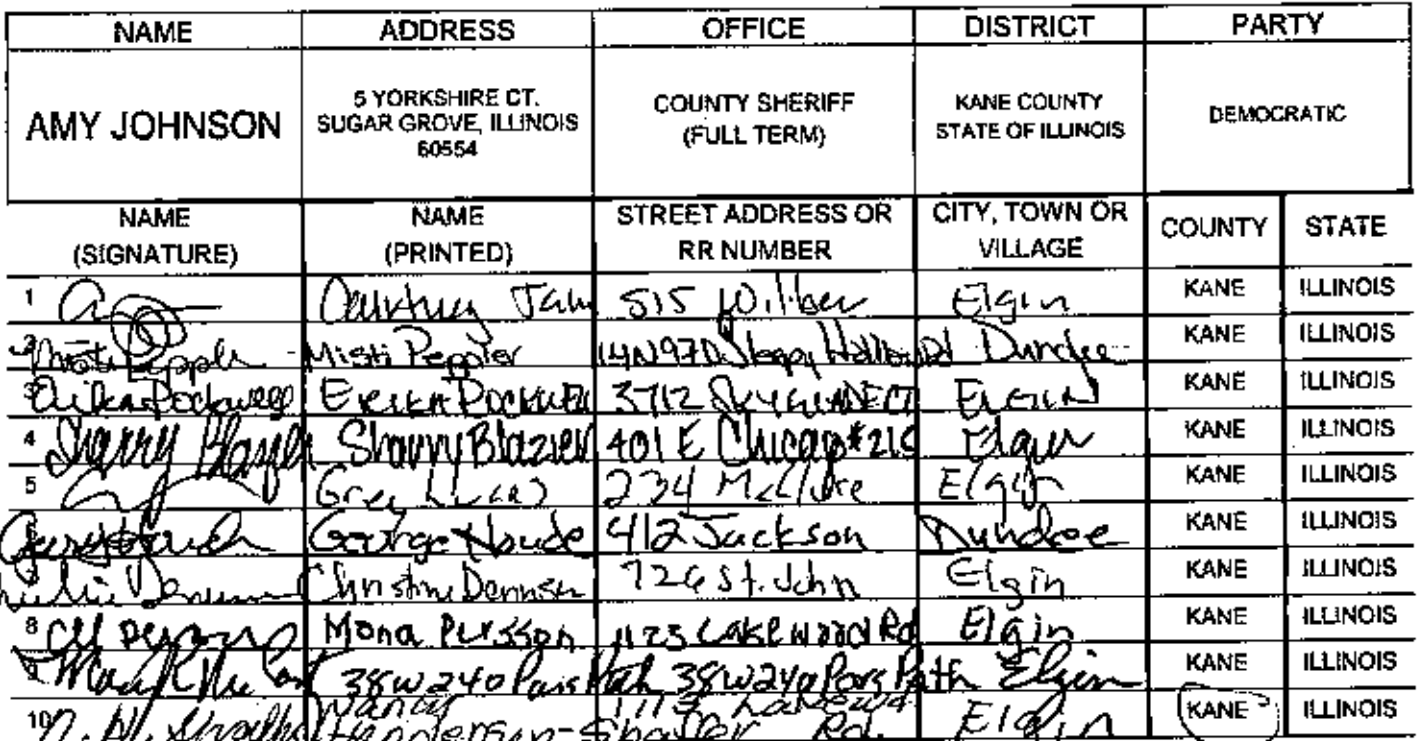 NAME ADDRESS OFFICE DISTRICT PARTY
AMY JOHNSON 5 YORKSHIRE CT. SUGAR GROVE, ILLINOIS 60554 COUNTY SHERIFF (FULL TERM) KANE COUNTY STATE OF ILLINOIS DEMOCRATIC
NAME (SIGNATURE) NAME (PRINTED) STREET ADDRESS OR RR NUMBER CITY, TOWN OR VILLAGE COUNTY STATE
1 515 Wilber Elgin KANE ILLINOIS
Misti Peppler Misti Peppler 14N970 Sleepy Hollow Rd Dundee KANE ILLINOIS
3 Erika Rockwell 3712 Elgin KANE ILLINOIS
4 Sharry Blazier Sharry Blazier 401 E Chicago #215 Elgin KANE ILLINOIS
5 Greg 234 McClure Elgin KANE ILLINOIS
George Houde 412 Jackson Dundee KANE ILLINOIS
Christine Dennison 726 St. John Elgin KANE ILLINOIS
8 Mona Persson 1173 Lakewood Rd Elgin KANE ILLINOIS
38W240 Path 38W240 Path Elgin KANE ILLINOIS
10 Nancy Henderson-Shaffer Rd. Elgin KANE ILLINOIS